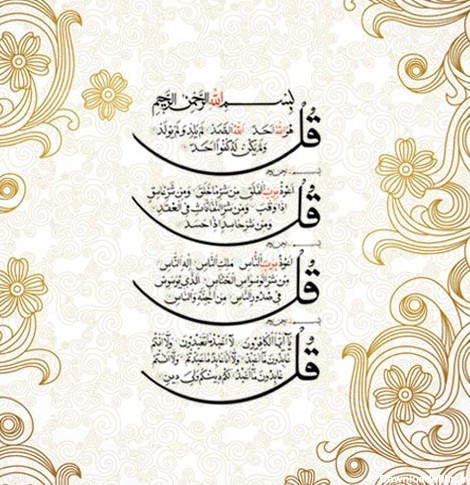 بسم الله الرحمن الرحیم
قل هو الله احد الله الصمد لم یلد ولم یولد
ولم یکن له کفوا احد
بسم الله الرحمن الرحیم
قل اعوذ برب الفلق من شر ما خلق ومن شر غاسق
اذا وقب ومن شر النفاثات فی العقد
ومن شر حاسد اذا حسد
بسم الله الرحمن الرحیم
قل اعوذ برب الناس ملک الناس اله الناس
من شر الوسواس الخناس الذی یوسوس
فی صدور الناس من الجنة والناس
بسم الله الرحمن الرحیم
قل یا ایها الکافرون لا اعبد ما تعبدون ولا انتم
عابدون ما اعبد ولا انا عابد ما عبدتم ولا انتم
عابدون ما اعبد لکم دینکم ولی دین